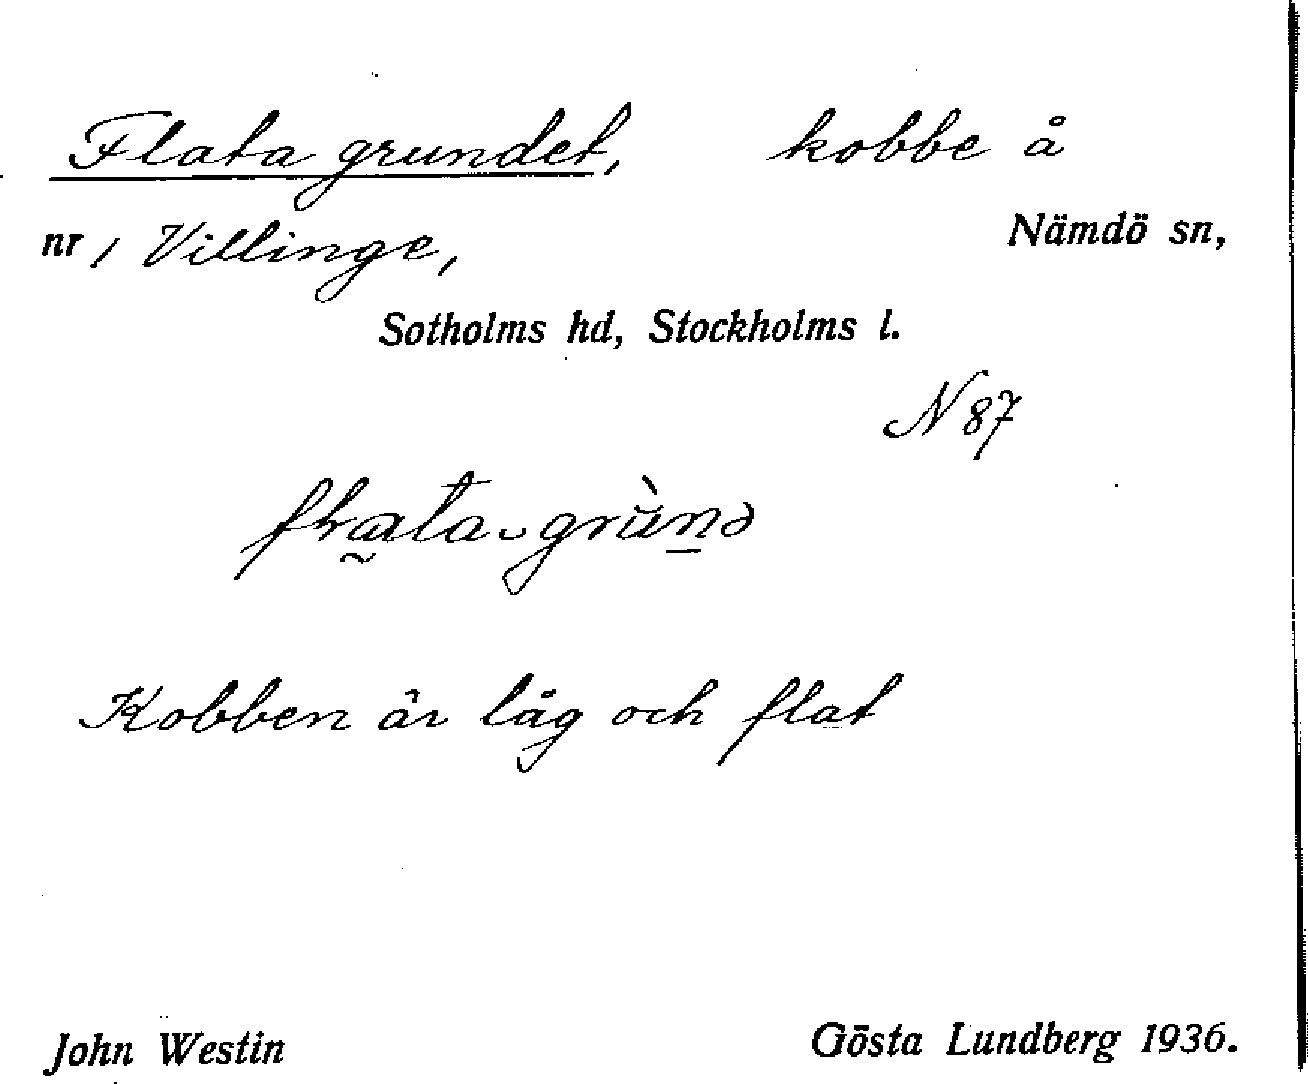 Flata grundet, kobbe å
nr 1 Villinge, Nämdö sn,
Sotholms hd, Stockholms l.
N 87
Kobben är låg och flat
John Westin Gösta Lundberg 1936.